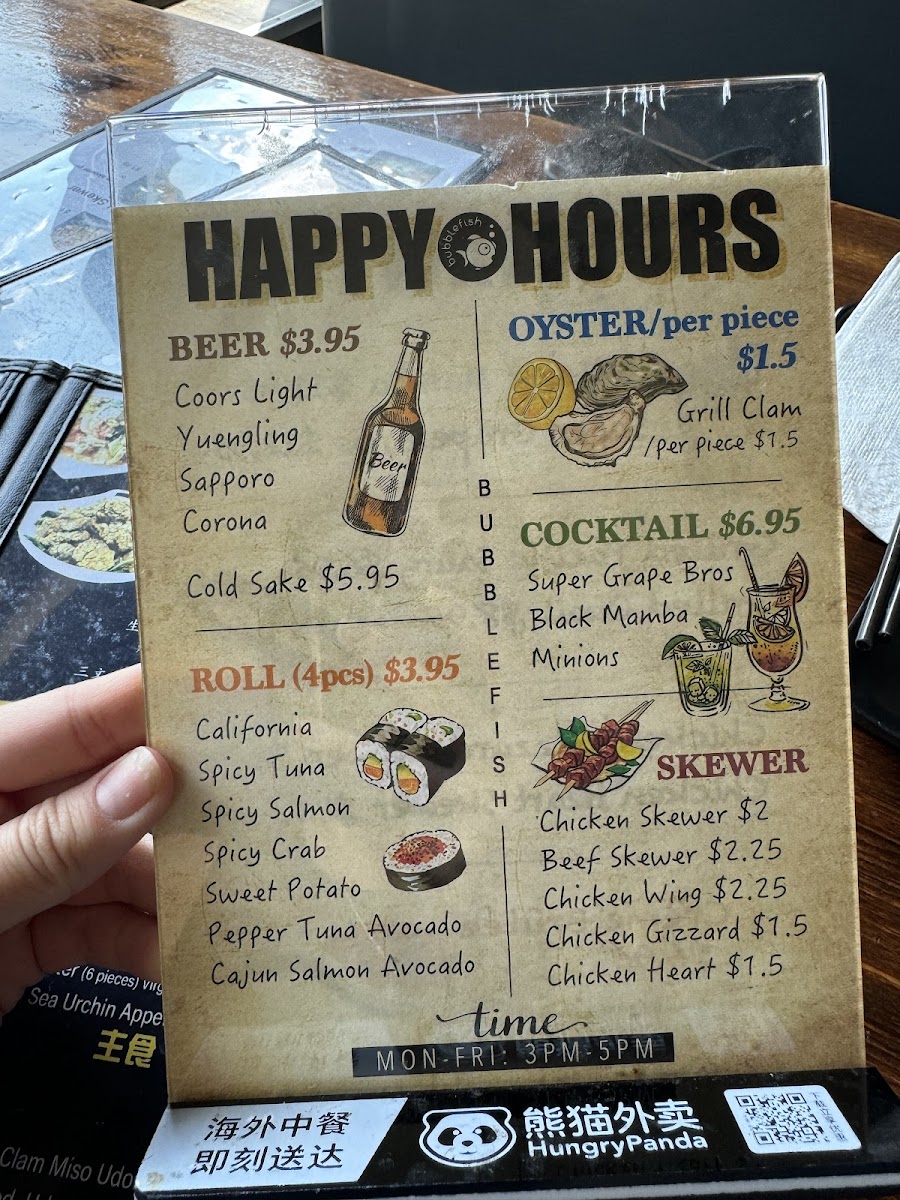 HAPPY bubblefish HOURS
BEER $3.95
Coors Light
Yuengling
Sapporo
Corona
Beer
Cold Sake $5.95
ROLL (4pcs) $3.95
California
Spicy Tuna
Spicy Salmon
Spicy Crab
Sweet Potato
Pepper Tuna Avocado
Cajun Salmon Avocado
BUBBLEFISH
OYSTER/per piece
$1.5
Grill Clam
/per piece $1.5
COCKTAIL $6.95
Super Grape Bros
Black Mamba
Minions
SKEWER
Chicken Skewer $2
Beef Skewer $2.25
Chicken Wing $2.25
Chicken Gizzard $1.5
Chicken Heart $1.5
time
MON-FRI: 3PM-5PM
海外中餐
即刻送达
熊猫外卖
HungryPanda
Skewer
(6 pieces)
Sea Urchin
主食
Clam Miso